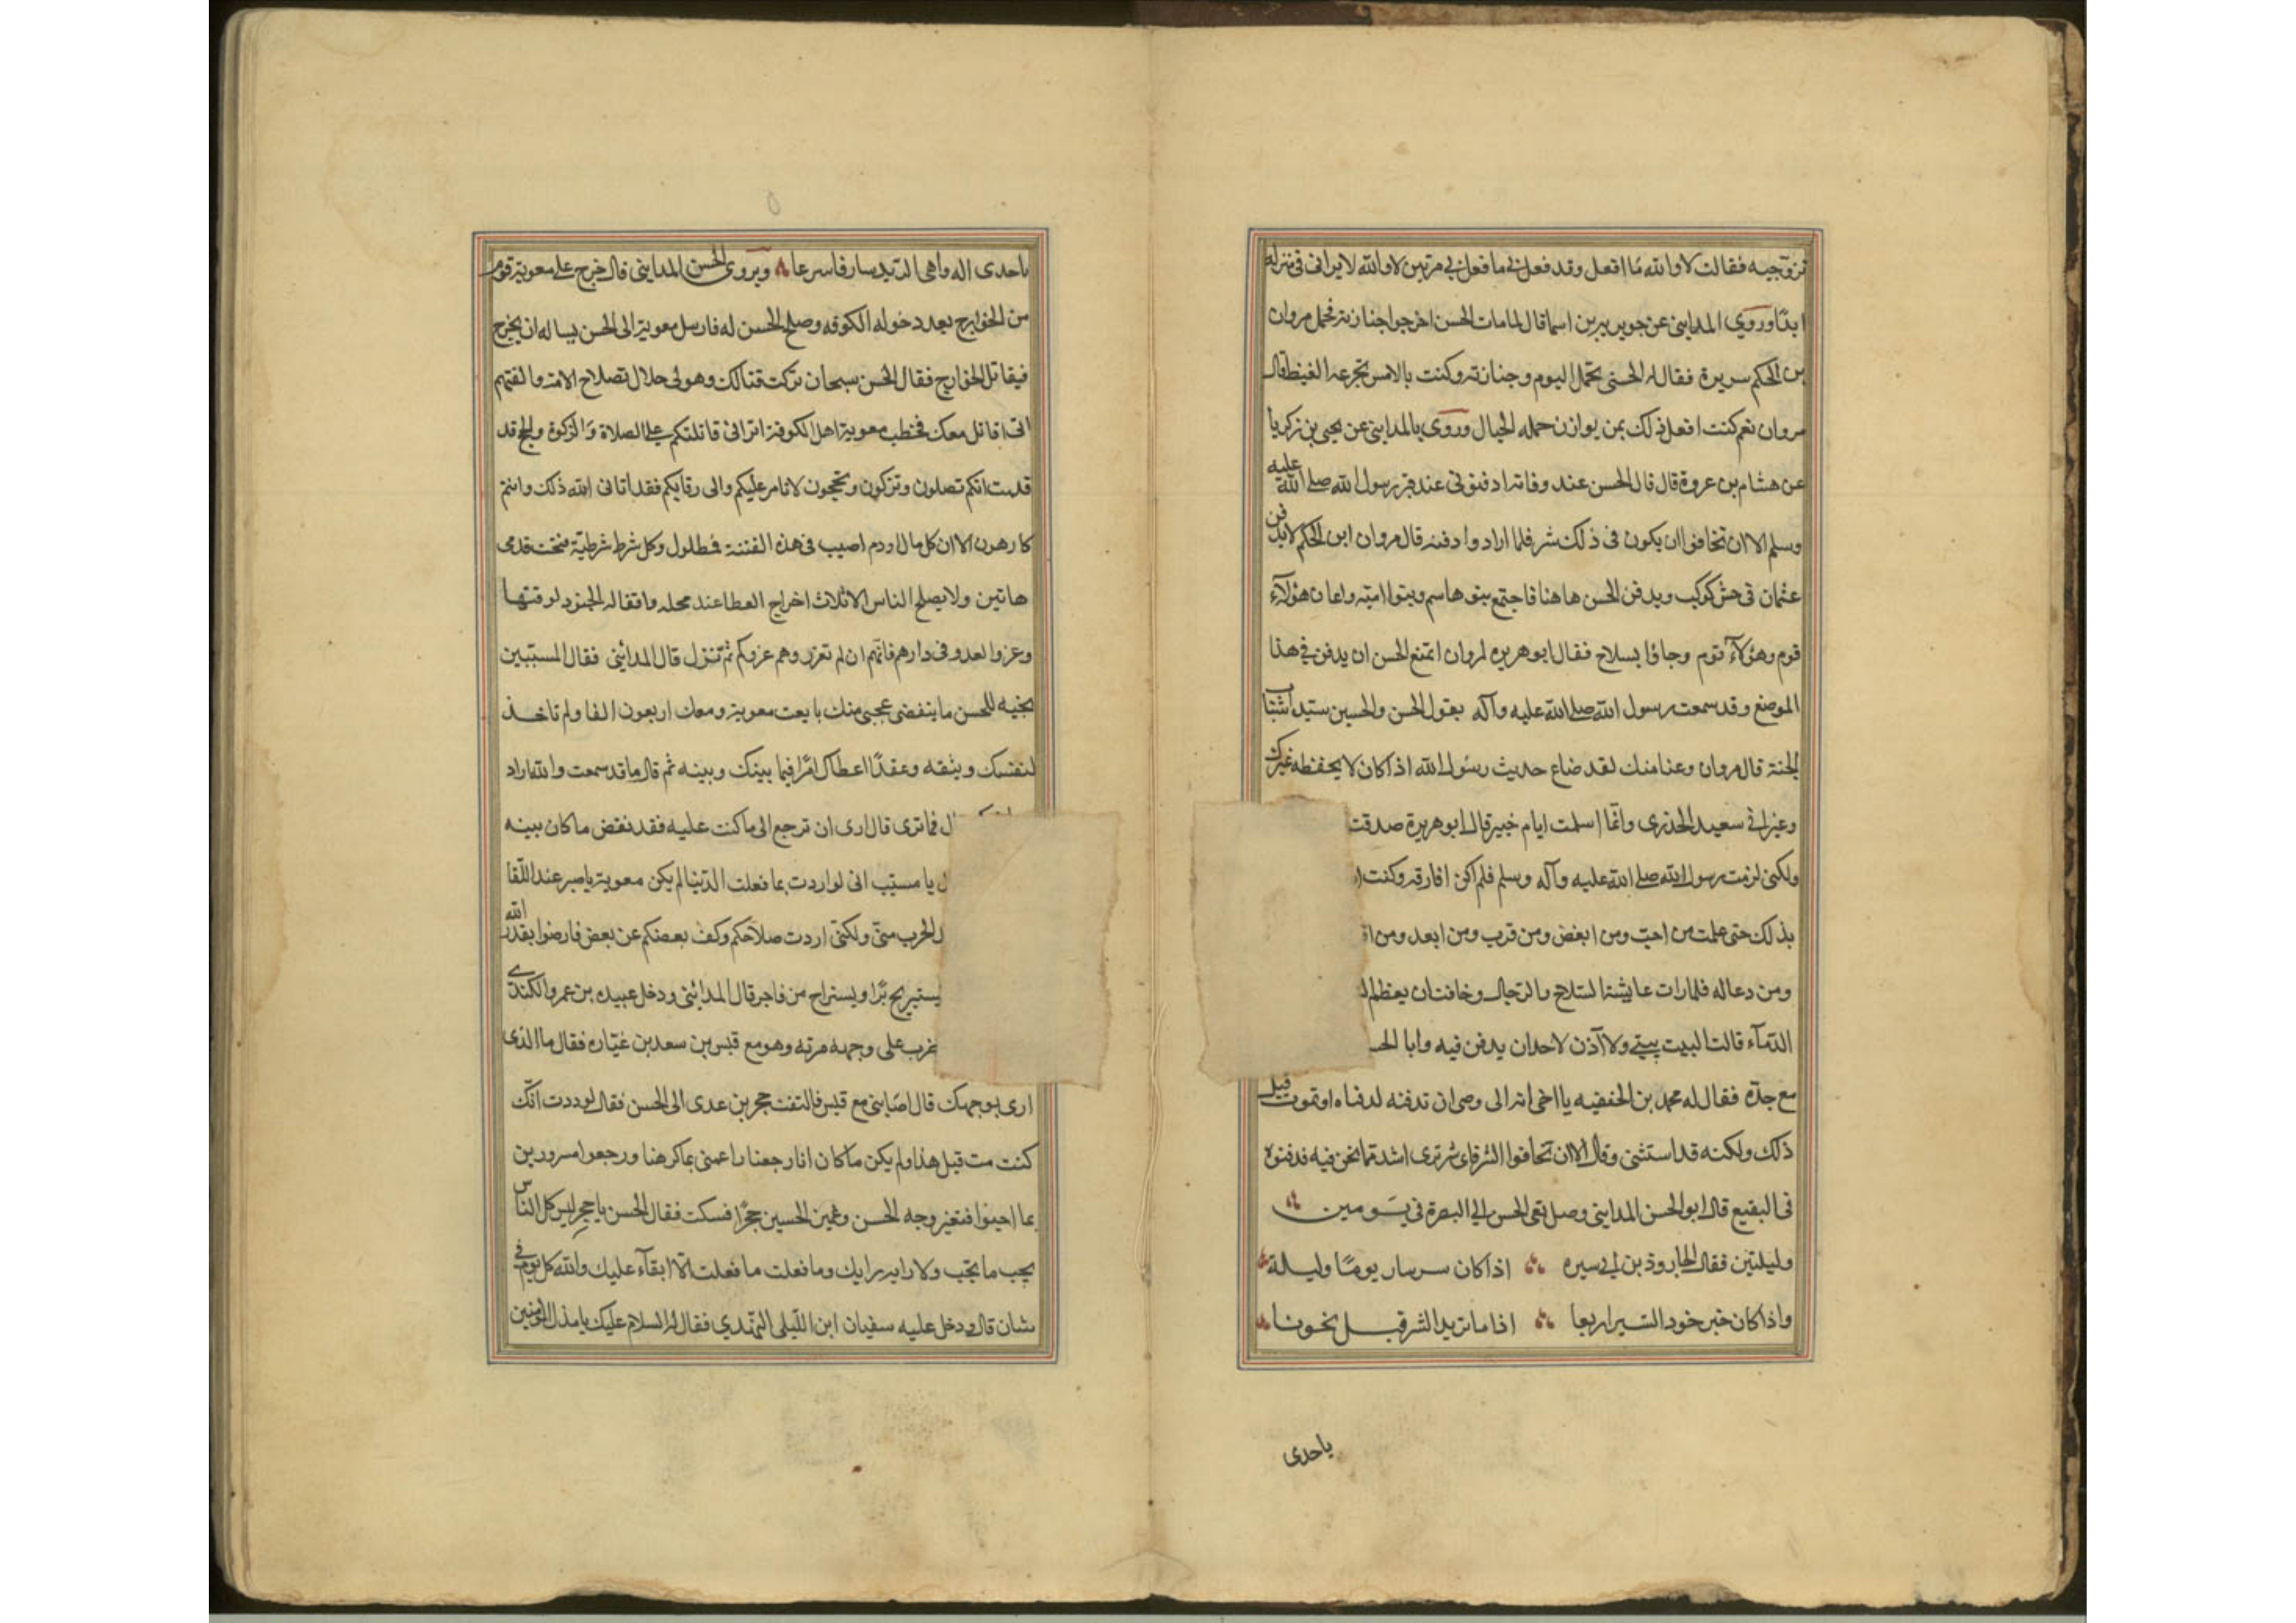 تزوجيه فقالت لا والله ما افعل وقد فعل بي ما فعل بي مرتين لا والله لا يراني في منزله
ابدًا وروى المدايني عن جويريه بن اسما قال لما مات الحسن اخرجوا جنازته فحمل مروان
بن الحكم سريره فقال له الحسين تحمل اليوم وجنازته وكنت بالامس تجرعه الغيظ قال
مروان نعم كنت افعل ذلك بمن يوازن حمله الجبال وروى بالمدايني عن يحيى بن زكريا
عن هشام بن عروة قال قال الحسن عند وفاته ادفنوني عند قبر رسول الله صلى الله عليه
وسلم الا ان تخافوا ان يكون في ذلك شر فلما ارادوا دفنه قال مروان ابن الحكم لا يدفن
عثمان في حش كوكب ويدفن الحسن هاهنا فاجتمع بنو هاسم وبنوا امية واعان هؤلاء
قوم وهؤلاء قوم وجاؤا بسلاح فقال ابو هريره لمروان اتمنع الحسن ان يدفن في هذا
الموضع وقد سمعت رسول الله صلى الله عليه وآله يقول الحسن والحسين سيدا شباب
الجنة قال مروان دعنا منك لقد ضاع حديث رسول الله اذا كان لا يحفظه غيرك
وغير ابي سعيد الخدري وانما اسلمت ايام خيبر قال ابو هريرة صدقت
ولكني لزمت رسول الله صلى الله عليه وآله وسلم فلم اكن افارقه وكنت
بذلك حتى علمت من احب ومن ابغض ومن قرب ومن ابعد ومن
ومن دعا له فلما رات عايشة السلاح والرجال وخافت ان يعظم
الدماء قالت البيت بيتي ولا آذن لاحد ان يدفن فيه وابا
مع جده فقال له محمد بن الحنفيه يا اخي انه الى وصى ان تدفنه لدفناه او تموت قبل
ذلك ولكنه قد استثنى وقال الا ان تخافوا الشر فاي شر ترى اشد مما نحن فيه فدفنوه
في البقيع قال ابو الحسن المدايني وصل نعى الحسن الى البصرة في يومين
وليلتين فقال الجارود بن ابي سبره اذا كان سر سار يومًا وليلة
واذا كان خبر خود السير اربعا اذا ما تريد الشر قبل نحونا
ياحدى
باحدى اله واهي الدبد سار فاسرعا ويروى الحسن المدايني قال خرج على معوية قوم
من الخوارج بعد دخوله الكوفه وصلح الحسن له فارسل معوية الى الحسن يساله ان يخرج
فيقاتل الخوارج فقال الحسن سبحان تركت قتالك وهو لي حلال لصلاح الامة والفتهم
اني اقاتل معك فخطب معوية اهل الكوفة اتراني قاتلتكم على الصلاة والزكوة والحج قد
قلمت انكم تصلون وتزكون وتحجون لاتامر عليكم والى رقابكم فقد اتاني الله ذلك وانتم
كارهون الا ان كل مال او دم اصيب في هذه الفتنة فمطلول وكل شرط شرطية تحت قدمي
هاتين ولا يصلح الناس الا ثلاث اخراج العطا عند محله واقفاله الجنود لوقتها
وغزوا لعدو في دارهم فانهم ان لم تغزروهم غزوكم ثم تنزل قال المدائني فقال المسيبين
بجنيه للحسن ما ينقضي عجبي منك بايعت معوية ومعك اربعون الفا ولم تاخذ
لنفسك وبثقه وعقدًا اعطاك امرًا فيما بينك وبينه ثم قال ما قد سمعت والله ما راد
فما ترى قال ارى ان ترجع الى ما كنت عليه فقد نقض ما كان بينه
يا مسيب اني لو اردت بما فعلت الدنيا لم يكن معوية باصبر عند اللقا
الحرب مني ولكني اردت صلاحكم وكف بعضكم عن بعض فارضوا بقدر الله
يستريح برًا ويستراح من فاجر قال المدائني ودخل عبيده بن عمرو الكندي
على وجهه مرته وهو مع قيس بن سعد بن عباده فقال ما الذي
ارى بوجهك قال اصابني مع قيس فالتفت حجر بن عدى الى الحسن فقال لوددت انك
كنت مت قبل هذا ولم يكن ما كان انا رجعنا راغمين بما كرهنا ورجعوا مسرورين
بما احبوا فتغير وجه الحسن وغمين الحسين حجرًا فسكت فقال الحسن يا حجر ليس كل الناس
يحب ما تحب ولا رايه رايك وما فعلت ما فعلت الا ابقآء عليك والله كل يوم في
شان قال ودخل عليه سفيان ابن الليلى النهدي فقال له السلام عليك يا مذل المومنين